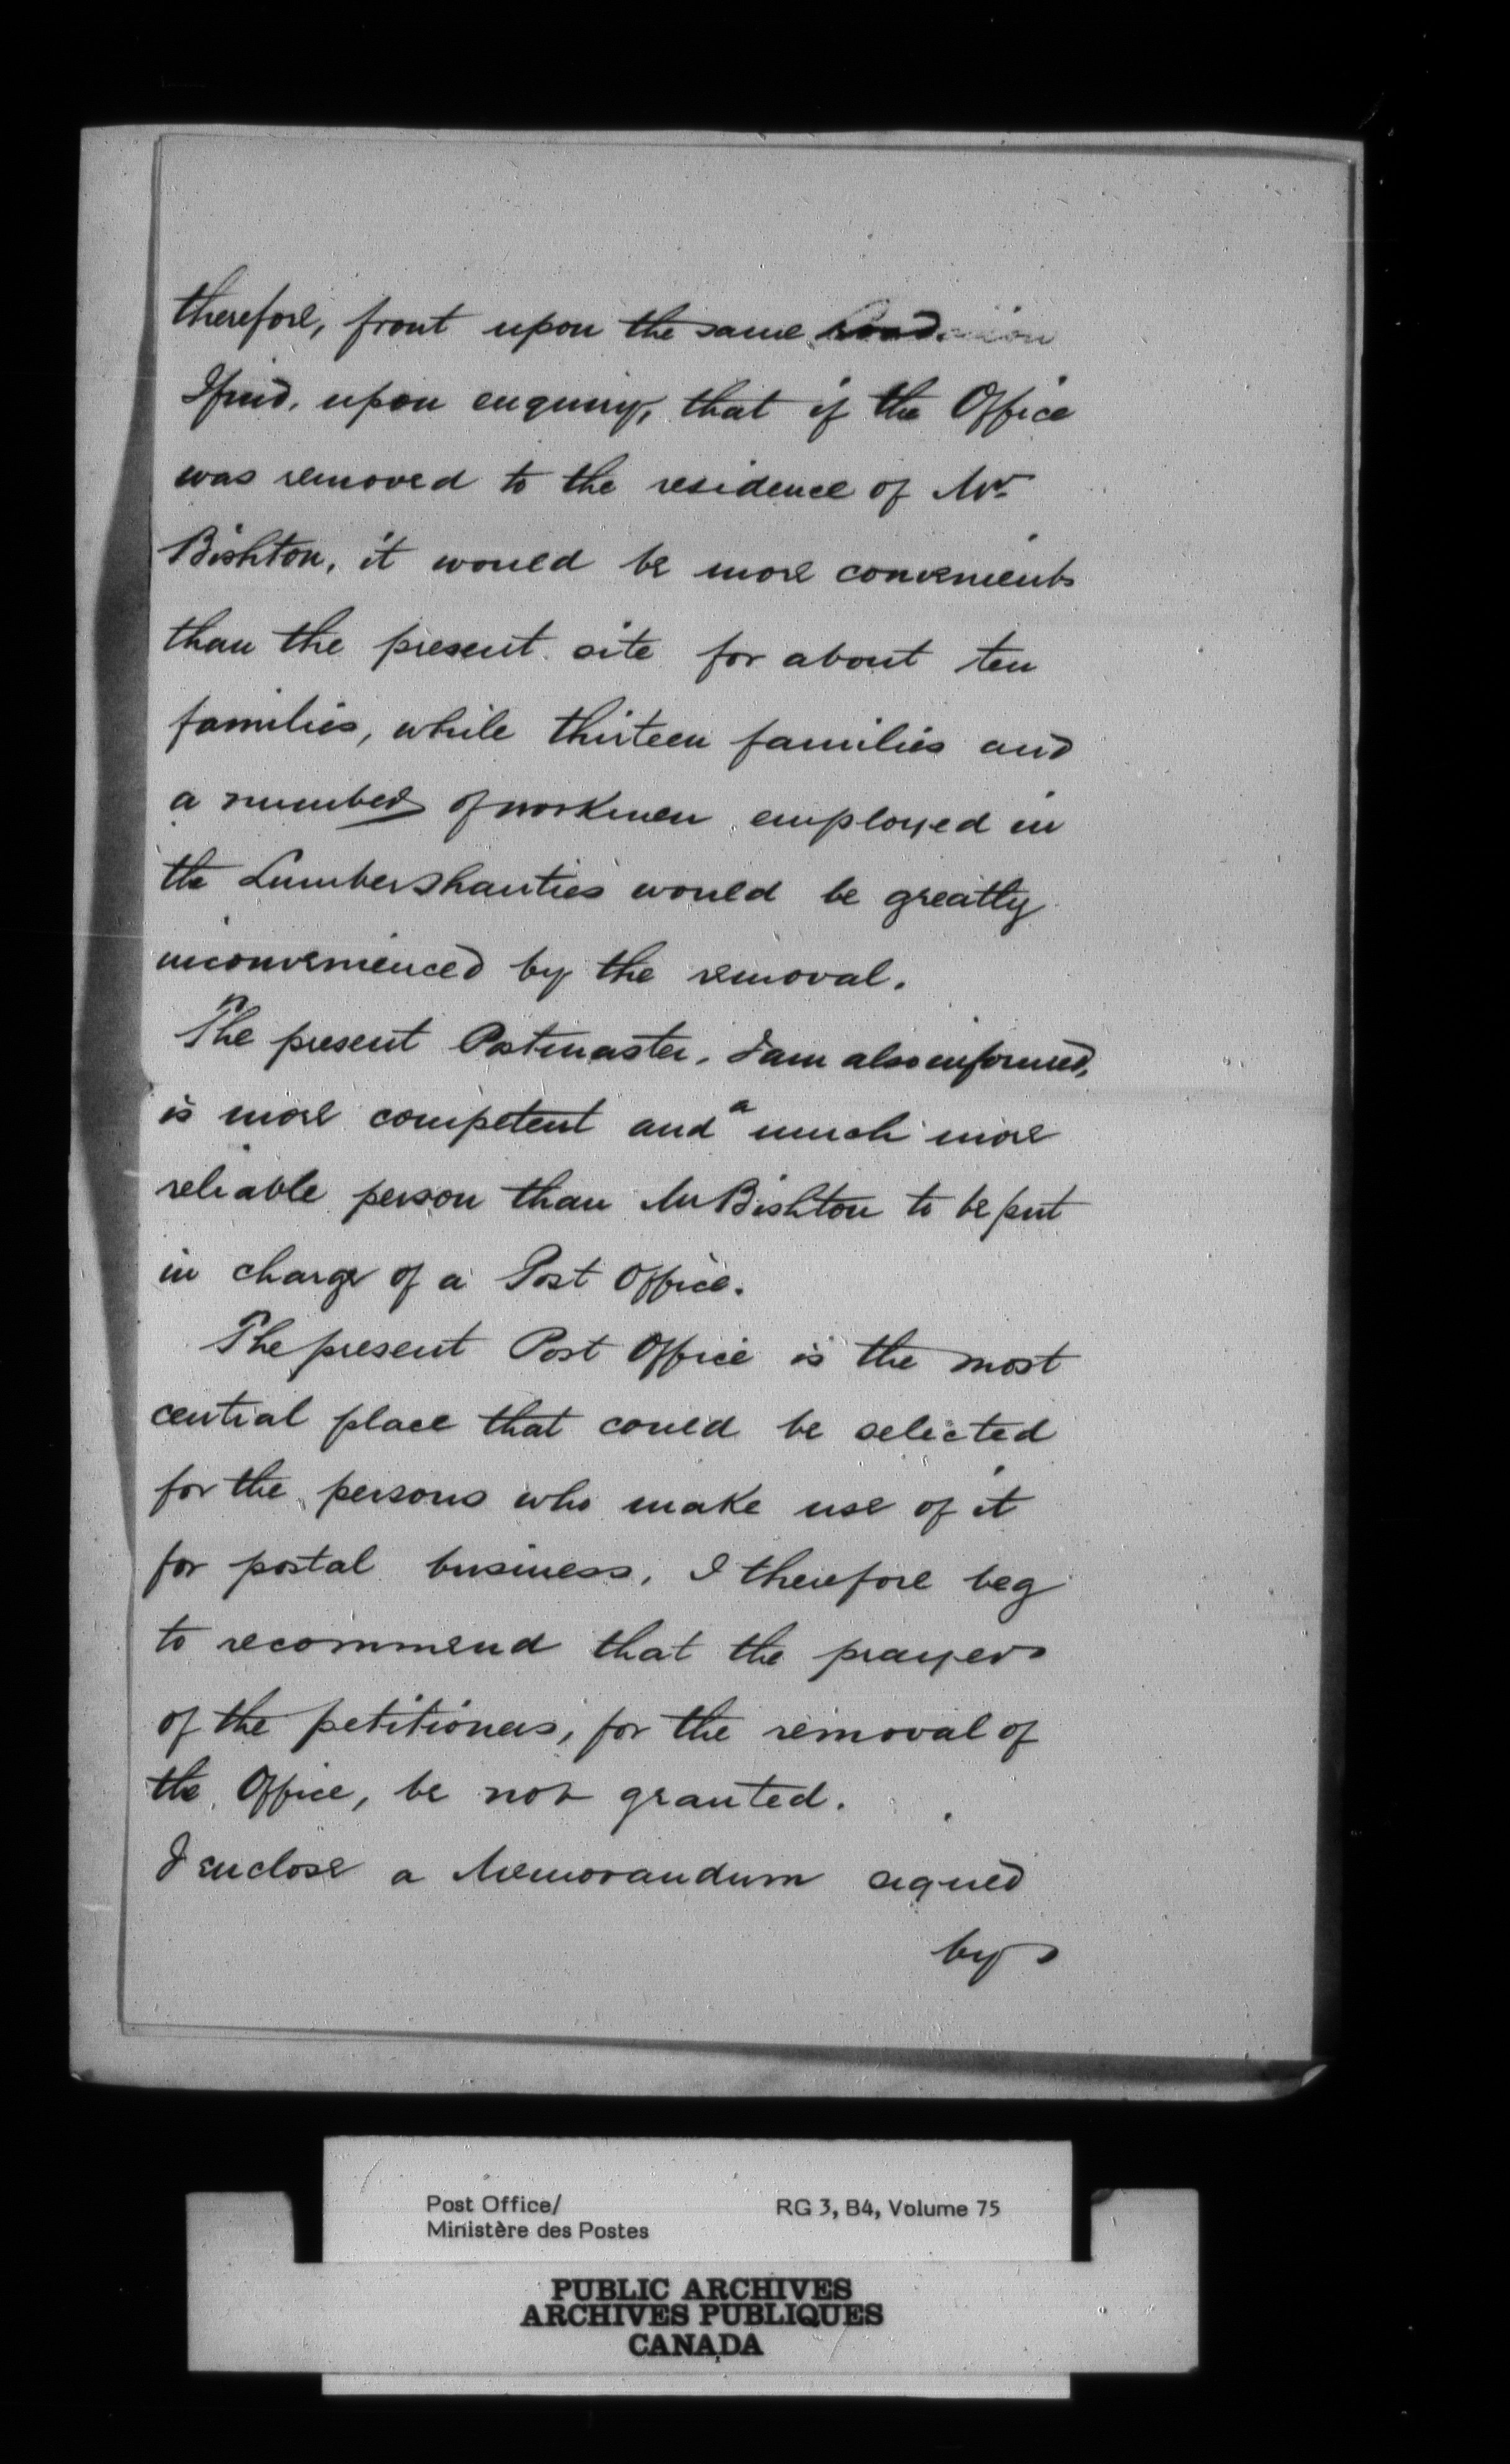 therefore, front upon the same Road.
I find, upon enquiry, that if the Office
was removed to the residence of Mr
Bishton, it would be more convenient
than the present site for about ten
families, while thirteen families and
a number of workmen employed in
the Lumber Shanties would be greatly
inconvenienced by the removal.
The present Postmaster, I am also informed,
is more competent and a much more
reliable person than Mr Bishton to be put
in charge of a Post Office.
The present Post Office is the most
central place that could be selected
for the persons who make use of it
for postal business, I therefore beg
to recommend that the prayer
of the petitioners, for the removal of
the Office, be not granted.
I enclose a Memorandum signed
by
Post Office/
Ministère des Postes
RG 3, B4, Volume 75
PUBLIC ARCHIVES
ARCHIVES PUBLIQUES
CANADA